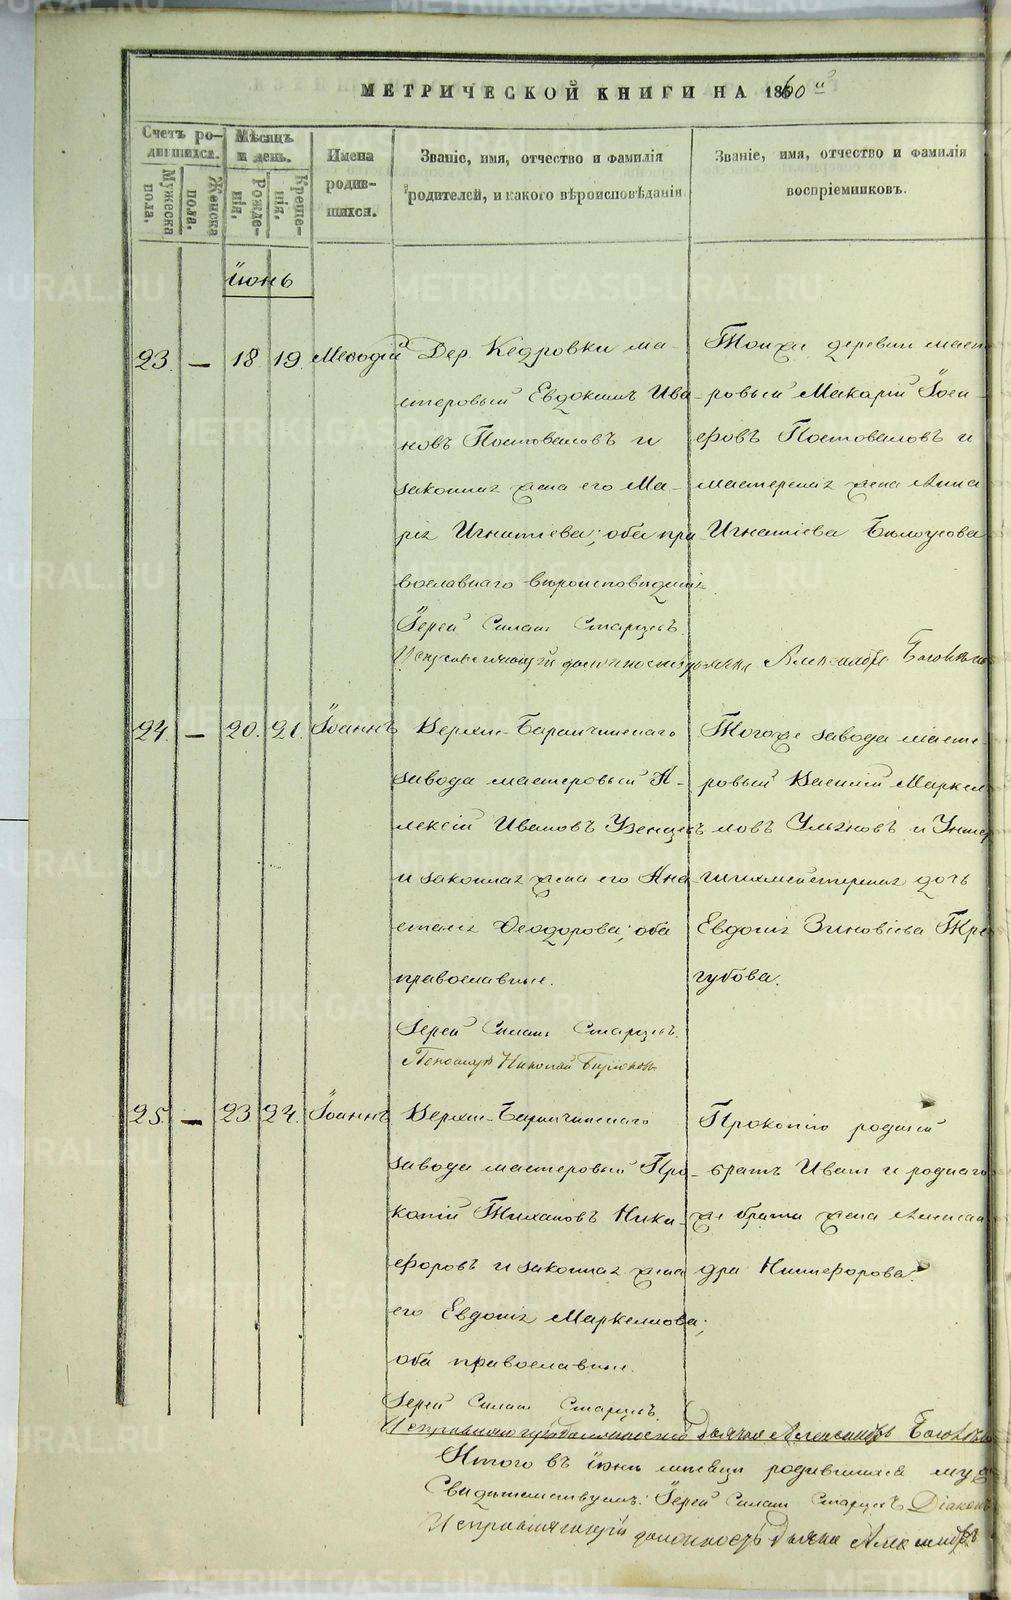 МЕТРИЧЕСКОЙ КНИГИ НА 1860й
Счетъ ро-
дившихся.
Мужеска
пола.
Женска
пола.
Мѣсяцъ
и день.
Рожде-
нія.
Креще-
нія.
Имена
родив-
шихся.
Званіе, имя, отчество и фамилія
родителей, и какого вѣроисповѣданія.
Званіе, имя, отчество и фамилія
воспріемниковъ.
іюнь
23. — 18. 19. Меѳодій
Дер. Кедровки ма-
стеровый Евдокимъ Ива-
новъ Постоваловъ и
законная жена его Ма-
рія Игнатіева; оба пра-
вославнаго вѣроисповѣданія
Іерей Старцевъ.
Исправляющій должность дьячка Александръ
Тойже деревни масте-
ровый Макарій Іоси-
фовъ Постоваловъ и
мастерская жена Анна
Игнатіева Бѣлоусова
24. — 20. 21. Іоаннъ
Верхне-Баранчинскаго
завода мастеровый А-
лексій Ивановъ
и законная жена его Ана-
стасія Ѳеодорова; оба
православные.
Іерей Старцевъ.
Пономарь Николай Бирюковъ
Тогоже завода масте-
ровый Василій Маркел-
ловъ Ульяновъ и Унтер-
шихмейстерская дочь
Евдокія Зиновіева Тре-
губова.
25. — 23. 24. Іоаннъ
Верхне-Баранчинскаго
завода мастеровый Про-
копій Тихановъ Ники-
форовъ и законная жена
его Евдокія Маркеллова;
оба православные.
Іерей Старцевъ.
Исправляющій должность дьячка Александръ
Прокопію родной
братъ Иванъ и роднаго
же брата жена Алексан-
дра Никифорова.
Итого въ іюнѣ мѣсяцѣ родившихся муж
Свидѣтельствуемъ: Іерей Старцевъ Діаконъ
Исправляющій должность дьячка Александръ
METRIKI.GASO-URAL.RU